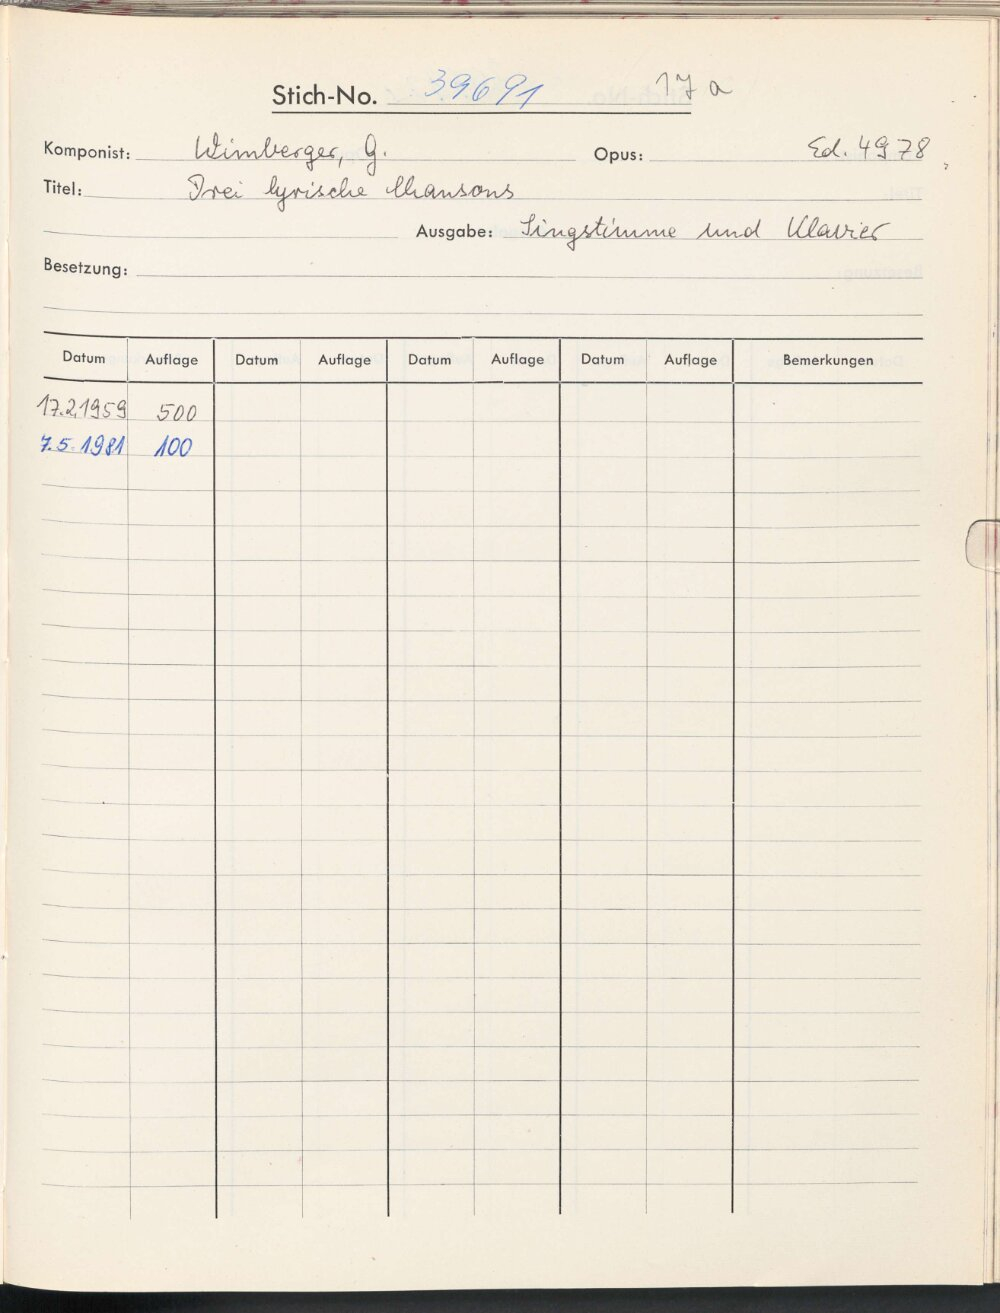 Stich-No. 39691 17 a
Komponist: Wimberger, G. Opus: Ed. 4978
Titel: Drei lyrische Chansons
Ausgabe: Singstimme und Klavier
Besetzung:
Datum Auflage Datum Auflage Datum Auflage Datum Auflage Bemerkungen
17.2.1959 500
7.5.1981 100